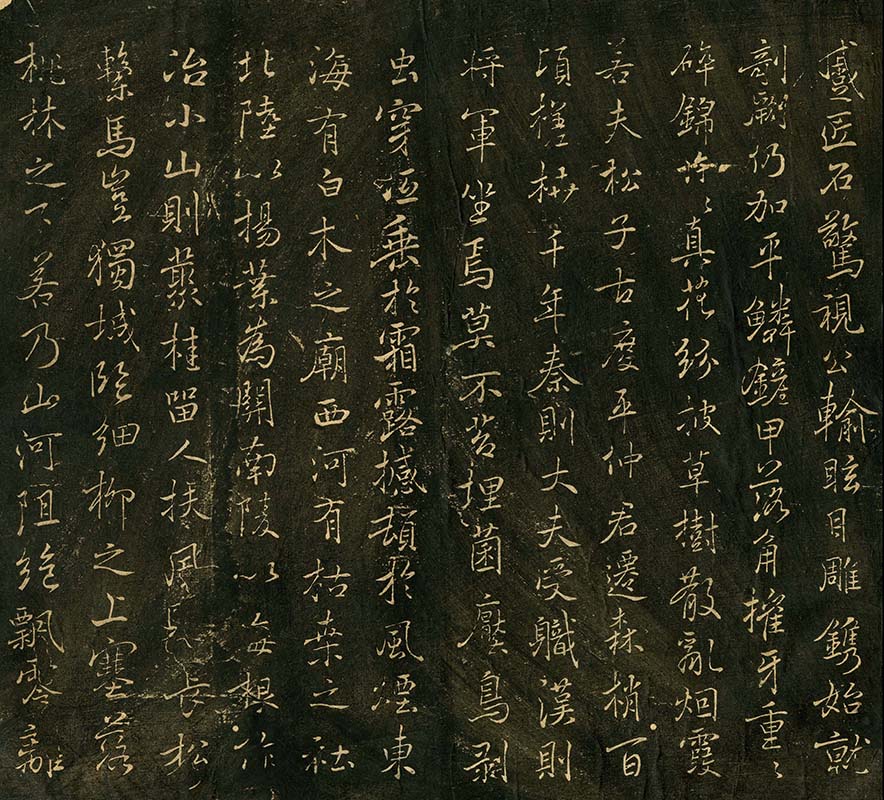 蹙匠石驚視公輸眩目雕鐫始就
剞劂仍加平鱗鏟甲落角摧牙重〻
碎錦片〻真花紛披草樹散亂烟霞
若夫松子古度平仲君遷森梢百
頃槎枿千年秦則大夫受職漢則
將軍坐焉莫不苔埋菌壓鳥剥
虫穿低垂於霜露撼頓於風煙東
海有白木之廟西河有枯桑之社
北陸以楊葉為關南陵以梅根作
冶小山則叢桂留人扶風則長松
繫馬豈獨城臨細柳之上塞落
桃林之下若乃山河阻絶飄零離